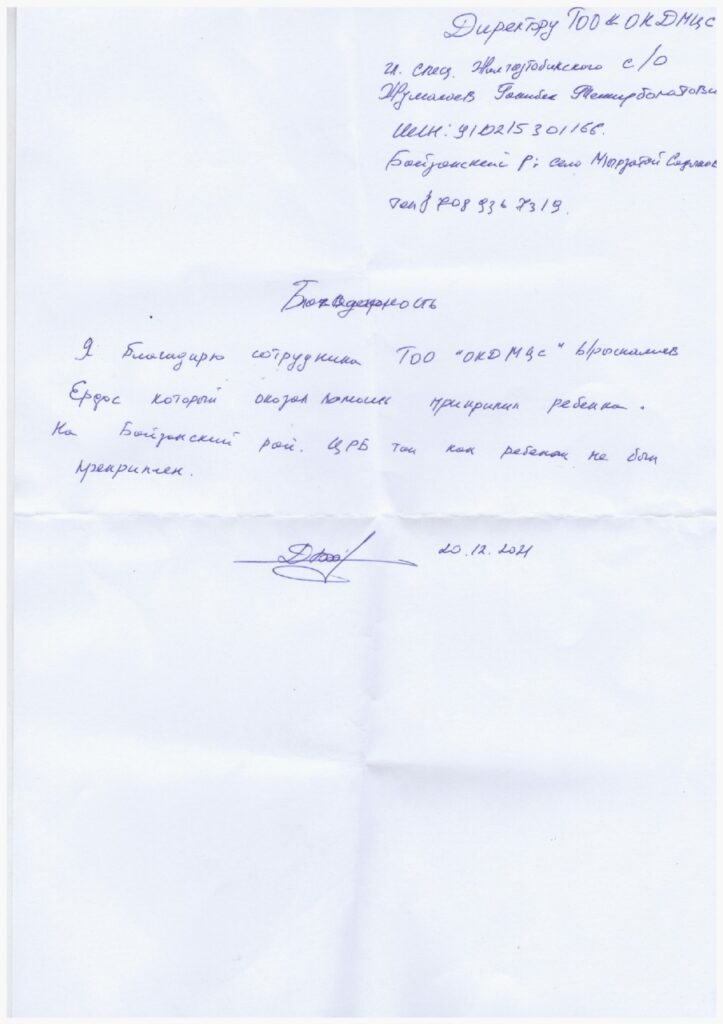 Директору ТОО «ОКДМЦС
гл. спец. Жалгызтобинского с/о
Жумакоев Ганибек Темирболатови
ИИН: 910215301166.
Байзакский р; село Мырзатай
тел 8 708 936 7319.
Благодарность
Я благадарю сотрудника ТОО "ОКДМЦС" Ырыскалиев
Ердос который оказал помощ прикрипил ребенка.
На Байзакский рай. ЦРБ так как ребенок не был
прекриплен.
20.12.2021